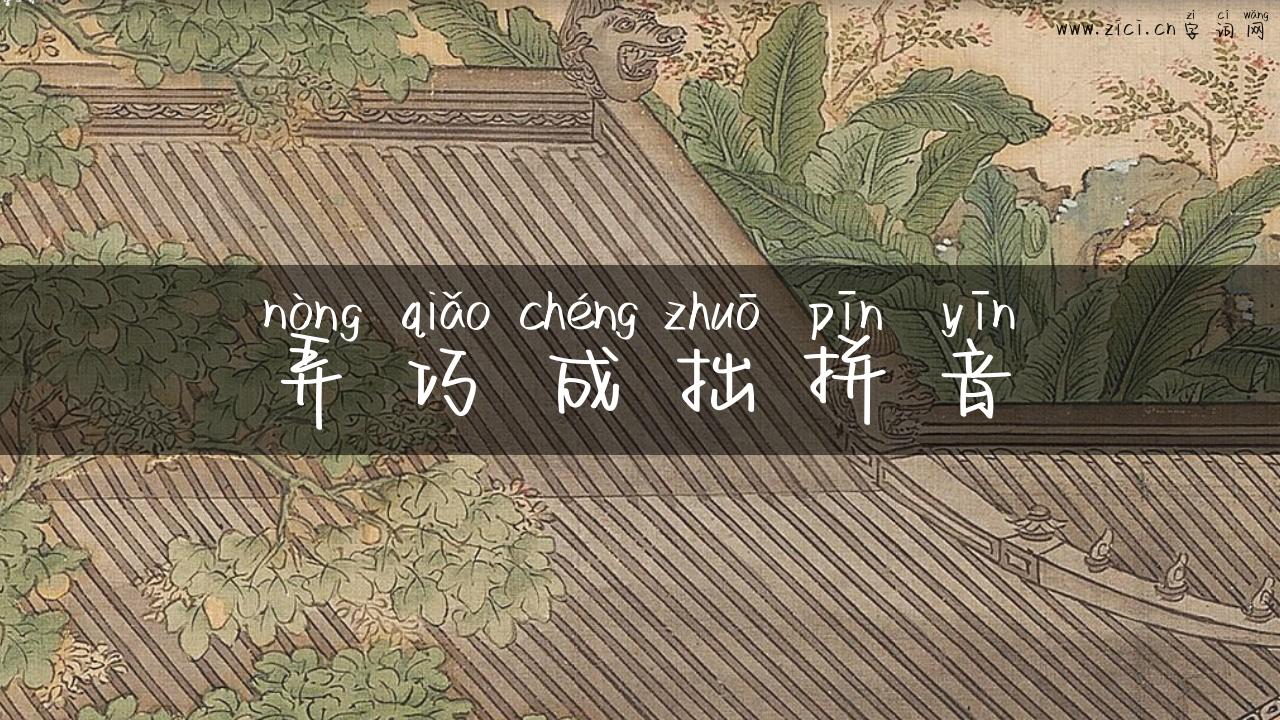 zì cí wǎng
www.zici.cn 字词网
nòng qiǎo chéng zhuō pīn yīn
弄巧成拙拼音